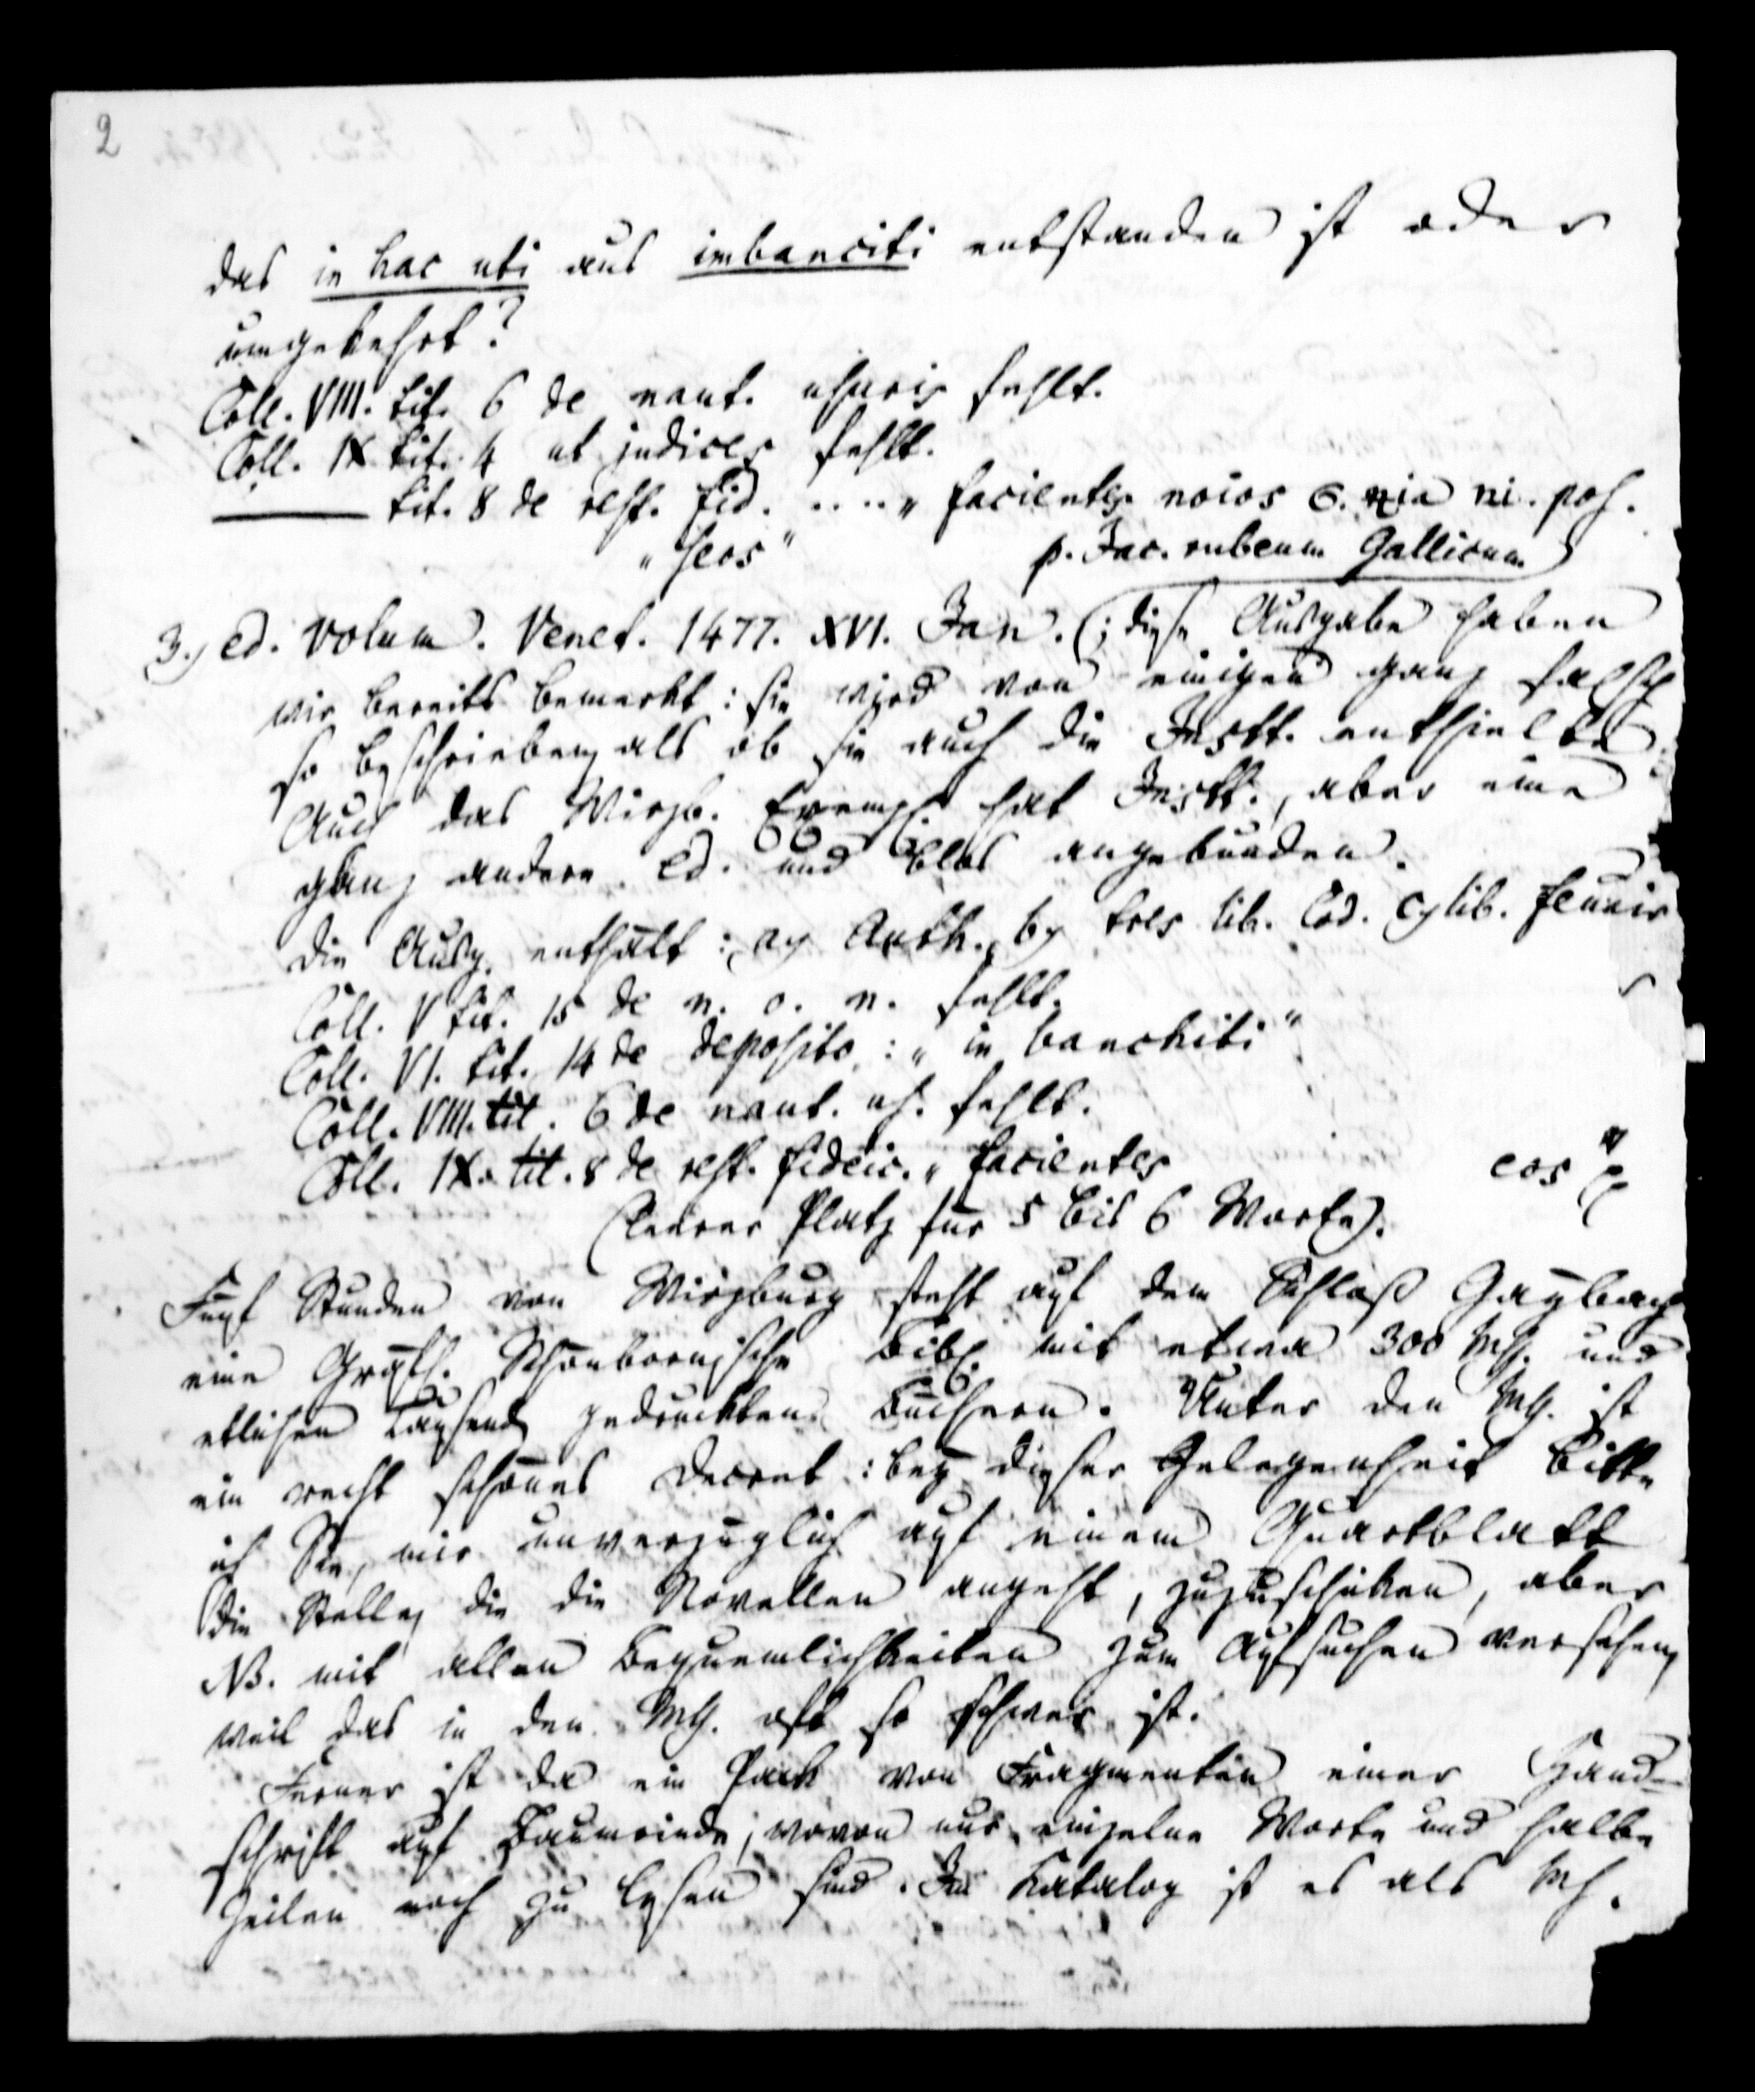 2
das in hac uti aus imbanciti entstanden ist oder
umgekehrt?
Coll. VIII. tit. 6 de naut. usuris fehlt.
Coll. IX tit. 4 ut judices fehlt.
——— tit. 8 de rest. fid. .... „facientes noios
„heos" p. Jac. rubeum Gallicum
3.) ed. Volum. Venet. 1477. XVI. Jan. (; diese Ausgabe haben
wir bereits bemerkt: sie wird von einigen ganz falsch
so beschrieben, als ob sie auch die Instt. enthielte.
Auch das Wirzb. Exempl. hat Instt., aber eine
ganz andere ed. und blos angebunden.
die Ausg. enthält: a) Auth. b) tres lib. Cod. c) lib. feudor
Coll. V tit. 15 de n. o. n. fehlt.
Coll. VI. tit. 14 de deposito: „in banchiti"
Coll. VIII. tit. 6 de naut. us. fehlt.
Coll. IX. tit. 8 de rest. fideic. „facientes eos"
(leerer Platz für 5 bis 6 Worte).
Fünf Stunden von Wirzburg steht auf dem Schloß Gaybach
eine Gräfl. Schönbornische Bibl. mit etwa 300 Mss. und
etlichen Tausend gedruckten Büchern. Unter den Mss. ist
ein recht schönes Decret: bey dieser Gelegenheit bitte
ich Sie, mir unverzüglich auf einem Quartblatt
die Stelle, die die Novellen angeht, zuzuschicken, aber
NB. mit allen Bequemlichkeiten zum Aufsuchen versehen,
weil das in den Mss. oft so schwer ist.
Ferner ist da ein Pack von Fragmenten einer Hand-
schrift auf Baumrinde, wovon nur einzelne Worte und halbe
Zeilen noch zu lesen sind. Im Katalog ist es als Ms.